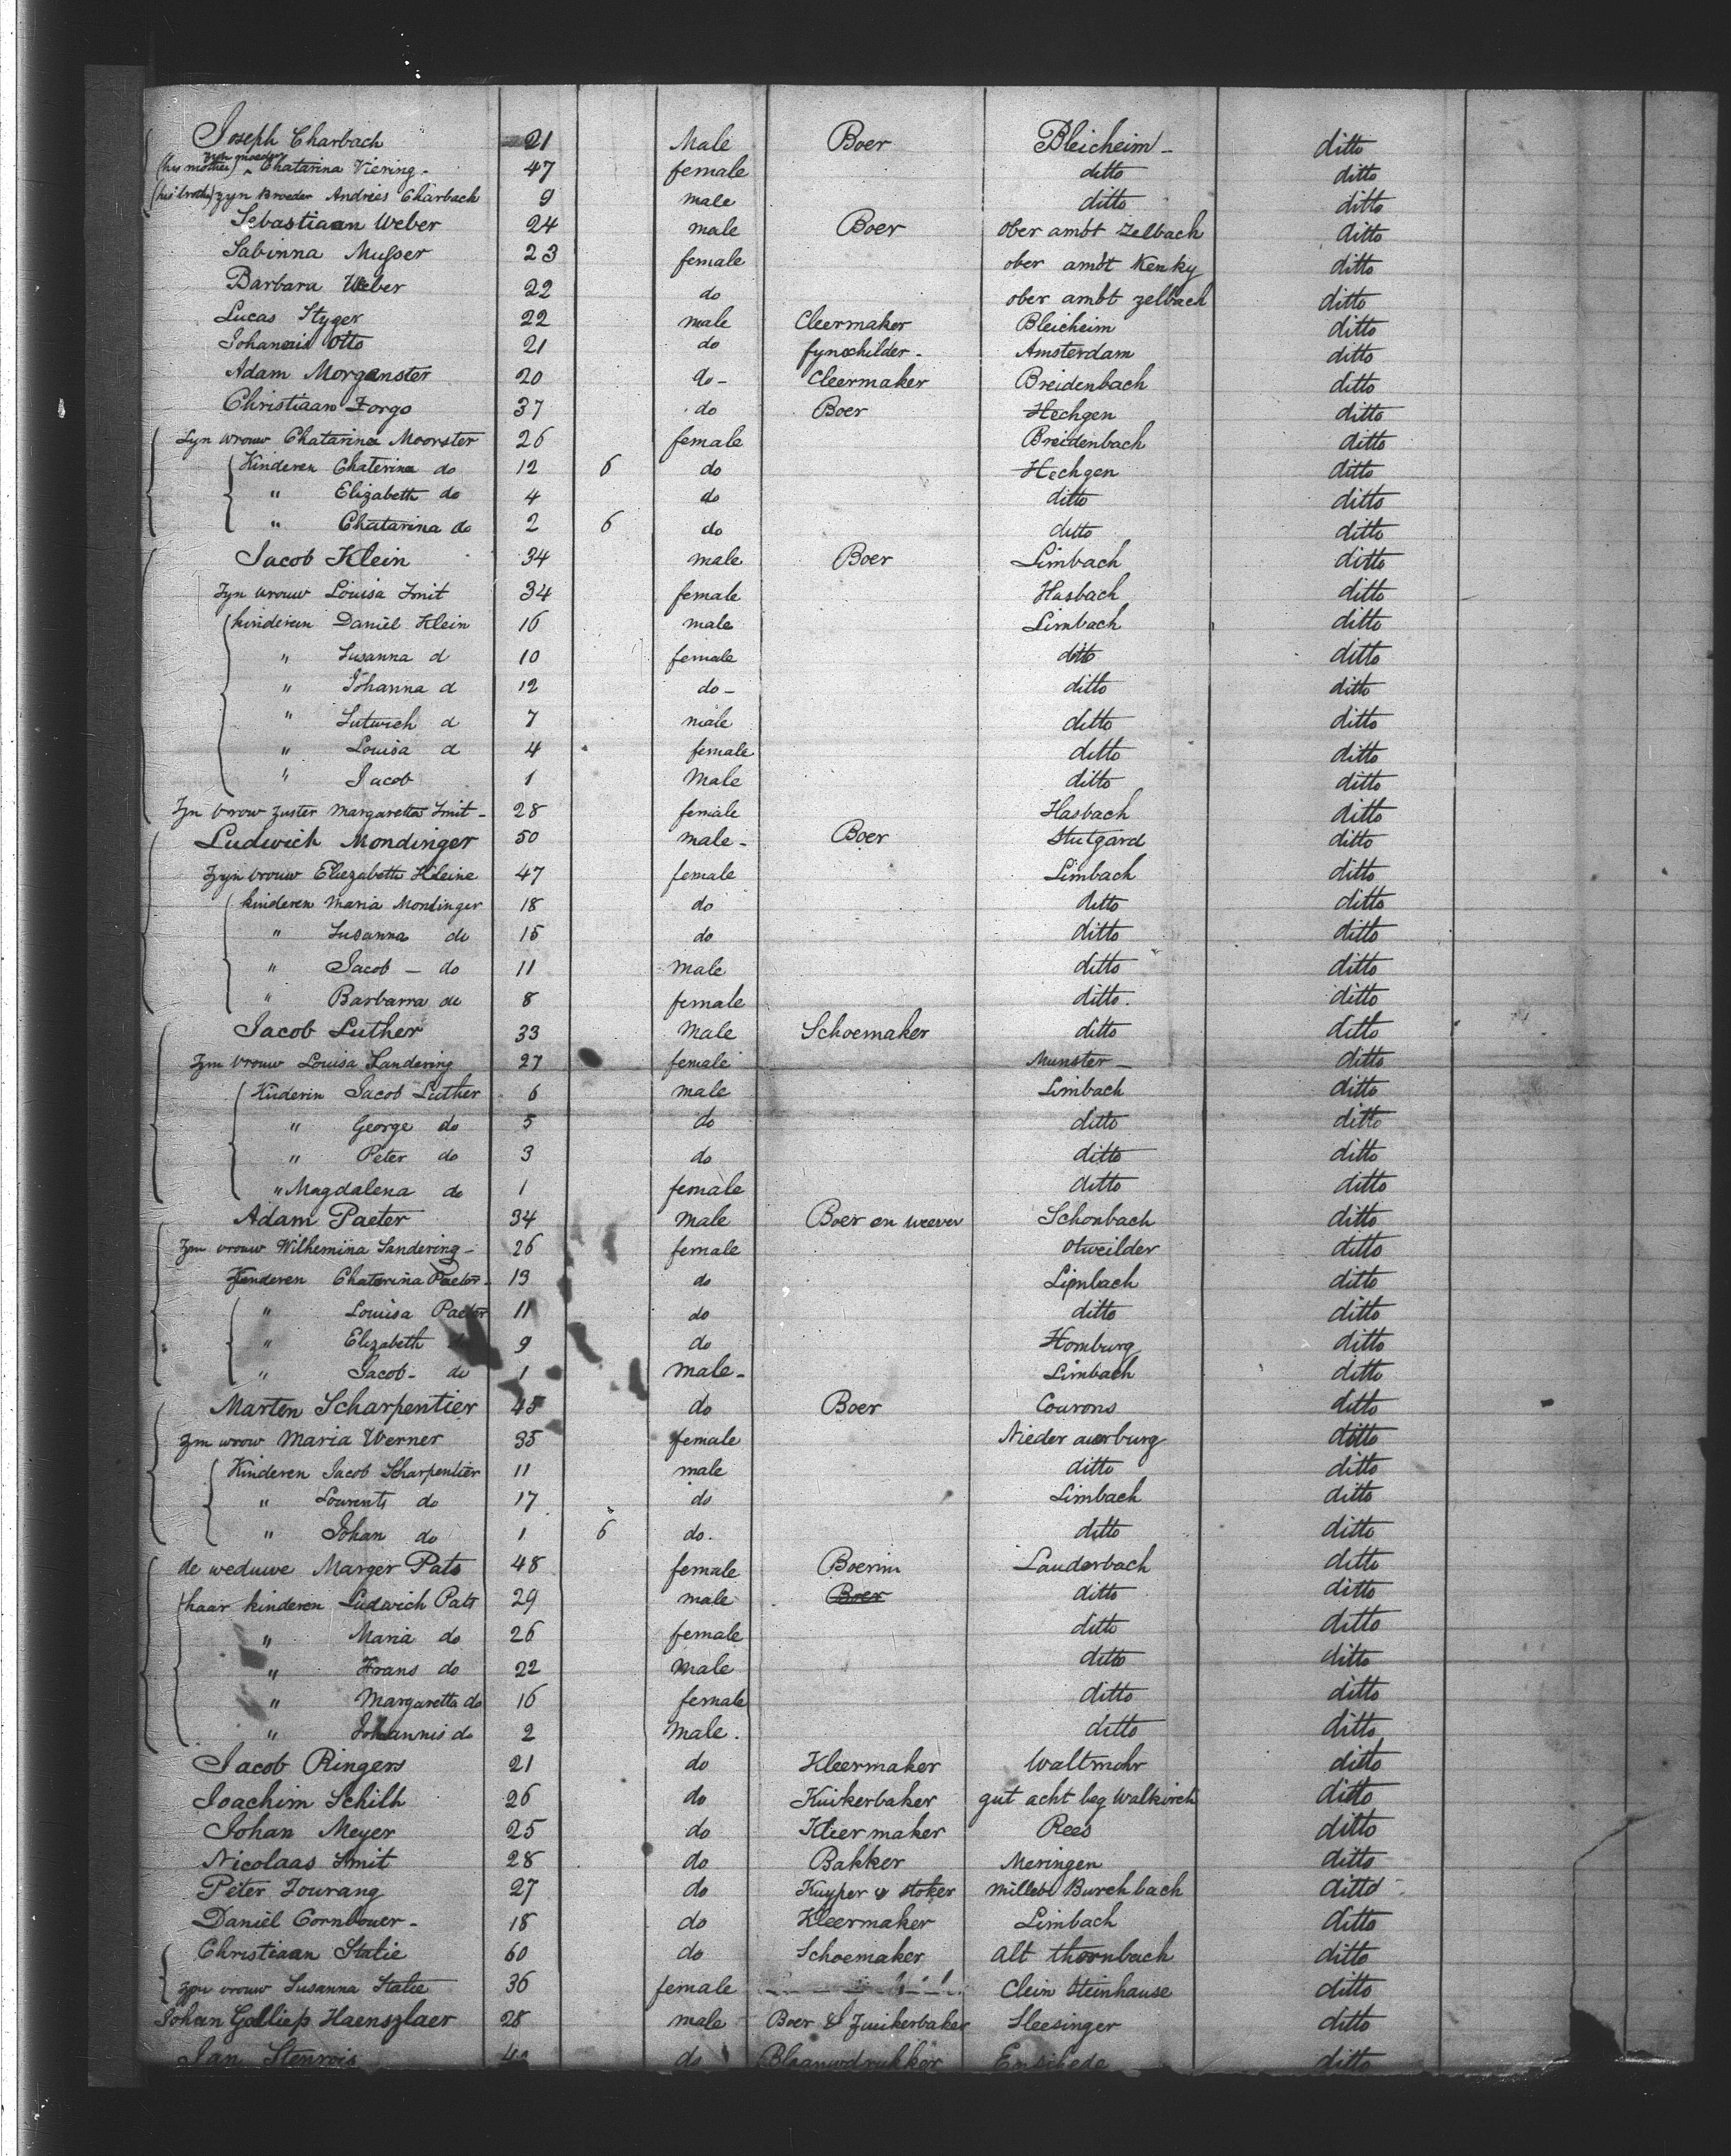 Joseph Charbach 21 Male Boer Bleicheim - ditto
(his mother) zyn moeder Chatarina Viering - 47 female ditto ditto
(his brother) zyn Broeder Andries Charbach 9 male ditto ditto
Sebastiaan Weber 24 male Boer Ober ambt Zelbach ditto
Sabinna Musser 23 female ober ambt Kenky ditto
Barbara Weber 22 do ober ambt zelbach ditto
Lucas Styger 22 male Cleermaker Bleicheim ditto
Johannis Otto 21 do fynschilder - Amsterdam ditto
Adam Morganster 20 do - Cleermaker Breidenbach ditto
Christiaan Zorgo 37 do Boer Hechgen ditto
Zyn vrouw Chatarina Moorster 26 female Breidenbach ditto
Kinderen Chaterina do 12 6 do Hechgen ditto
" Elizabeth do 4 do ditto ditto
" Chatarina do 2 6 do ditto ditto
Jacob Klein 34 male Boer Limbach ditto
Zyn vrouw Louisa Smit 34 female Hasbach ditto
kinderen Daniel Klein 16 male Limbach ditto
" Susanna d 10 female ditto ditto
" Johanna d 12 do - ditto ditto
" Lutwich d 7 male ditto ditto
" Louisa d 4 female ditto ditto
" Jacob 1 Male ditto ditto
Zyn vrow zuster Margaretta Smit - 28 female Hasbach ditto
Ludwich Mondinger 50 male - Boer Stutgard ditto
Zyn vrouw Eliezabeth Kleine 47 female Limbach ditto
kinderen Maria Mondinger 18 do ditto ditto
" Susanna do 15 do ditto ditto
" Jacob - do 11 Male ditto ditto
" Barbarra do 8 female ditto. ditto
Jacob Luther 33 Male Schoemaker ditto ditto
Zyn vrouw Louisa Sandering 27 female Munster - ditto
Kinderin Jacob Luther 6 male Limbach ditto
" George do 5 do ditto ditto
" Peter do 3 do ditto ditto
" Magdalena do 1 female ditto ditto
Adam Paeter 34 Male Boer en weever Schonbach ditto
Zyn vrouw Wilhemina Sandering - 26 female Otweilder ditto
Kinderen Chatarina Paeter 13 do Limbach ditto
" Louisa Paeter 11 do ditto ditto
" Elizabeth do 9 do Homburg ditto
" Jacob - do 1 Male - Limbach ditto
Marten Scharpentier 45 do Boer Courons ditto
Zyn vrow Maria Werner 35 female Nieder auerburg ditto
Kinderen Jacob Scharpentier 11 male ditto ditto
" Lourents do 17 do Limbach ditto
" Johan do 1 6 do. ditto ditto
de weduwe Marger Pats 48 female Boerin Lauderbach ditto
haar kinderen Ludwich Pats 29 male Boer ditto ditto
" Maria do 26 female ditto ditto
" Frans do 22 Male ditto ditto
" Margaretta do 16 female ditto ditto
" Johannis do 2 Male. ditto ditto
Jacob Ringers 21 do Kleermaker Waltmohr ditto
Joachim Schilh 26 do Kuikerbaker gut acht beg Walkirch ditto
Johan Meyer 25 do Kleermaker Rees ditto
Nicolaas Smit 28 do Bakker Meringen ditto
Peter Tourang 27 do Kuyper & stoker Millebt Burchbach ditto
Daniel Cornbouer - 18 do Kleermaker Limbach ditto
Christiaan Statie 60 do Schoemaker Alt thornbach ditto
zyn vrouw Susanna Statie 36 female Clein Steinhause ditto
Johan Galliep Haenszlaer 28 male Boer & Zuikerbaker Sleesinger ditto
Jan Stenrois do Blaauwdrukker Enschede ditto